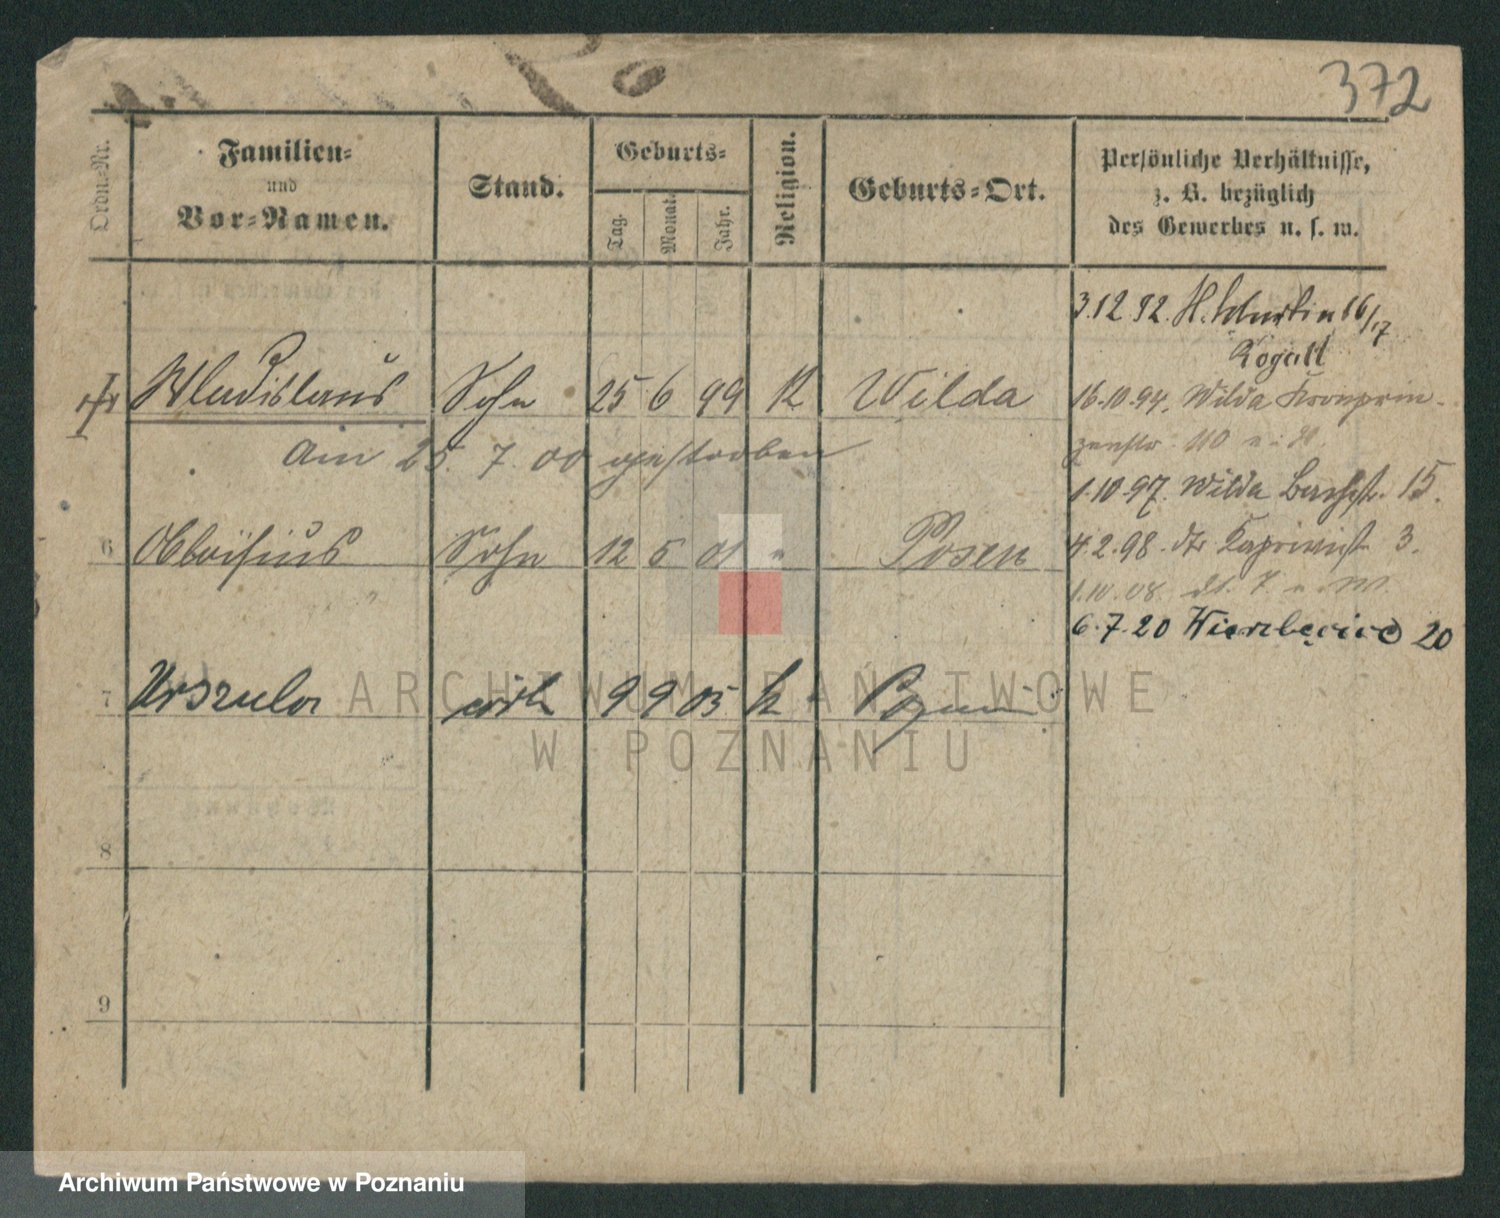 372
Ordn.-Nr.
Familien-
und
Vor-Namen.
Stand.
Geburts-
Tag.
Monat.
Jahr.
Religion.
Geburts-Ort.
Persönliche Verhältnisse,
z. B. bezüglich
des Gewerbes u. s. w.
3.12.92. St. Martin 16/17
Wladislaus Sohn 25 6 99 K Wilda
am 25. 7. 00 gestorben
16.10.94. Wilda Kronprin-
zenstr. 110
1.10.97. Wilda 15.
6 Sohn 12 5 01 " Posen
4.2.98. 3.
1.10.08.
6.7.20 Wierzbięcice 20
7 Urszula 9 9 05 k
8
9
ARCHIWUM PAŃSTWOWE
W POZNANIU
Archiwum Państwowe w Poznaniu